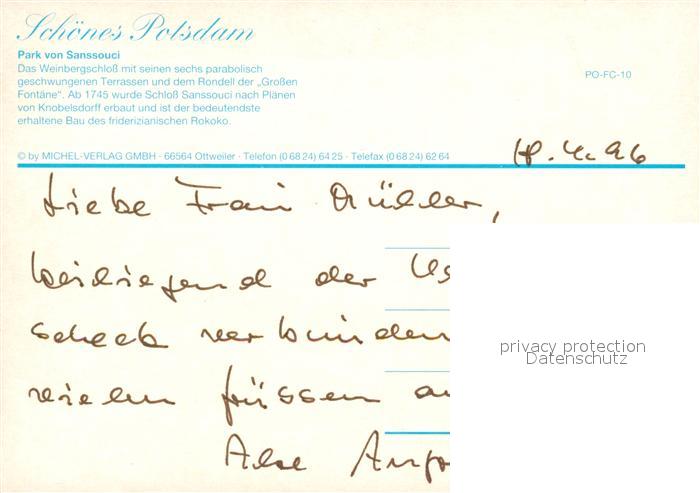 Schönes Potsdam
Park von Sanssouci
Das Weinbergschloß mit seinen sechs parabolisch
geschwungenen Terrassen und dem Rondell der „Großen
Fontäne“. Ab 1745 wurde Schloß Sanssouci nach Plänen
von Knobelsdorff erbaut und ist der bedeutendste
erhaltene Bau des friderizianischen Rokoko.
PO-FC-10
© by MICHEL-VERLAG GMBH · 66564 Ottweiler · Telefon (0 68 24) 64 25 · Telefax (0 68 24) 62 64
Liebe Frau Müller,
beiliegend der
scheck verbunden
vielen
privacy protection
Datenschutz